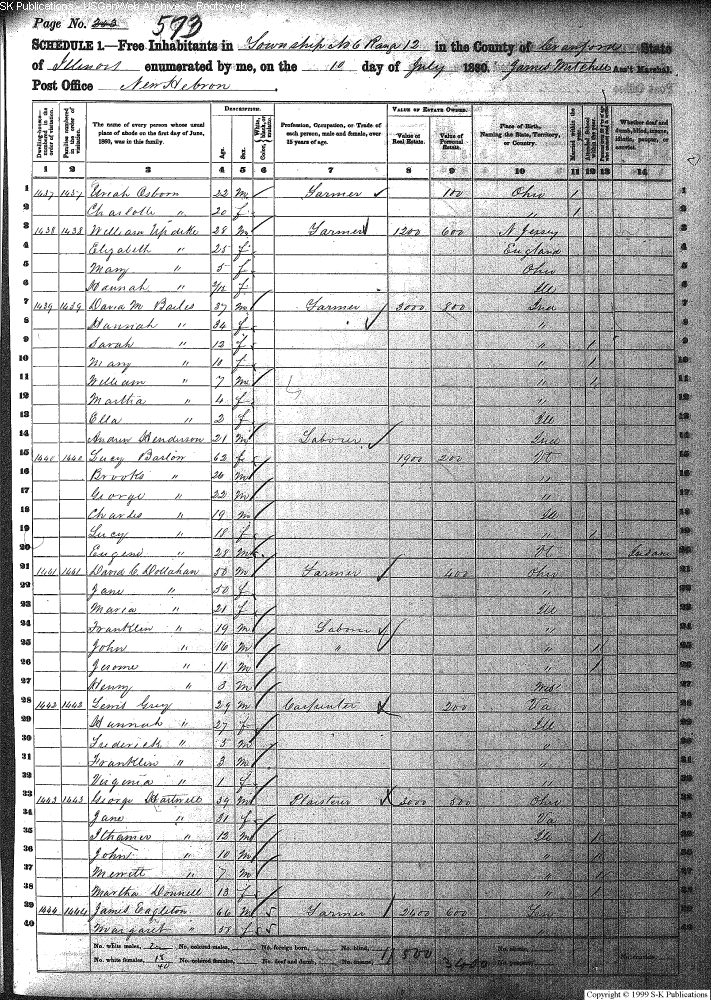 SK Publications - USGenWeb Archives - Rootsweb
Page No. 243 593
SCHEDULE 1.—Free Inhabitants in Township No 6 Range 12 in the County of Crawford State
of Illinois enumerated by me, on the 10 day of July 1860. James Mitchell Ass't Marshal.
Post Office New Hebron
Dwelling-houses—numbered in the order of visitation. Families numbered in the order of visitation. The name of every person whose usual place of abode on the first day of June, 1860, was in this family. DESCRIPTION. Age. Sex. Color, White, black, or mulatto. Profession, Occupation, or Trade of each person, male and female, over 15 years of age. VALUE OF ESTATE OWNED. Value of Real Estate. Value of Personal Estate. Place of Birth, Naming the State, Territory, or Country. Married within the year. Attended School within the year. Whether deaf and dumb, blind, insane, idiotic, pauper, or convict.
1 2 3 4 5 6 7 8 9 10 11 12 13 14
1 1437 1437 Uriah Osborn 22 m Farmer 100 Ohio 1 1
2 Charlotte " 20 f " 1 2
3 1438 1438 William Updike 28 m Farmer 1200 600 N Jersey 3
4 Elizabeth " 25 f England 4
5 Mary " 5 f Ohio 5
6 Hannah " f Ill 6
7 1439 1439 David M Bailes 37 m Farmer 3000 800 Ind 7
8 Hannah " 34 f " 8
9 Sarah " 12 f " 1 9
10 Mary " 10 f " 1 10
11 William " 7 m " 1 11
12 Martha " 4 f " 12
13 Ella " 2 f Ill 13
14 Andrew Henderson 21 m Laborer Ind 14
15 1440 1440 Lucy Barlow 62 f 1900 200 Vt 15
16 Brooks " 26 m " 16
17 George " 22 m " 17
18 Charles " 19 m Ill 18
19 Lucy " 18 f " 1 19
20 Eugene " 28 m Vt Insane 20
21 1441 1441 David C Dollahan 53 m Farmer 400 Ohio 21
22 Jane " 50 f " 22
23 Maria " 21 f Ill 23
24 Franklin " 19 m Laborer " 24
25 John " 16 m " " 1 25
26 Jerome " 11 m " 1 26
27 Henry " 3 m 27
28 1442 1442 Lewis Grey 29 m Carpenter 200 Va 28
29 Hannah " 27 f Ill 29
30 Frederick " 5 m " 30
31 Franklin " 3 m 31
32 Virginia " 1 f 32
33 1443 1443 George Hartwell 39 m Plaisterer 2000 500 Ohio 33
34 Jane " 31 f Va 34
35 Ithamer " 12 m Ill 1 35
36 John " 10 m " 1 36
37 Merritt " 7 m 1 37
38 Martha Donnell 13 f 38
39 1444 1444 James Eagleton 66 m Farmer 2400 600 39
40 Margaret " f 40
No. white males, No. colored males, No. foreign born, No. blind, 11500 3400
No. white females, 18 No. colored females, No. deaf and dumb, No. insane,
40
Copyright © 1999 S-K Publications